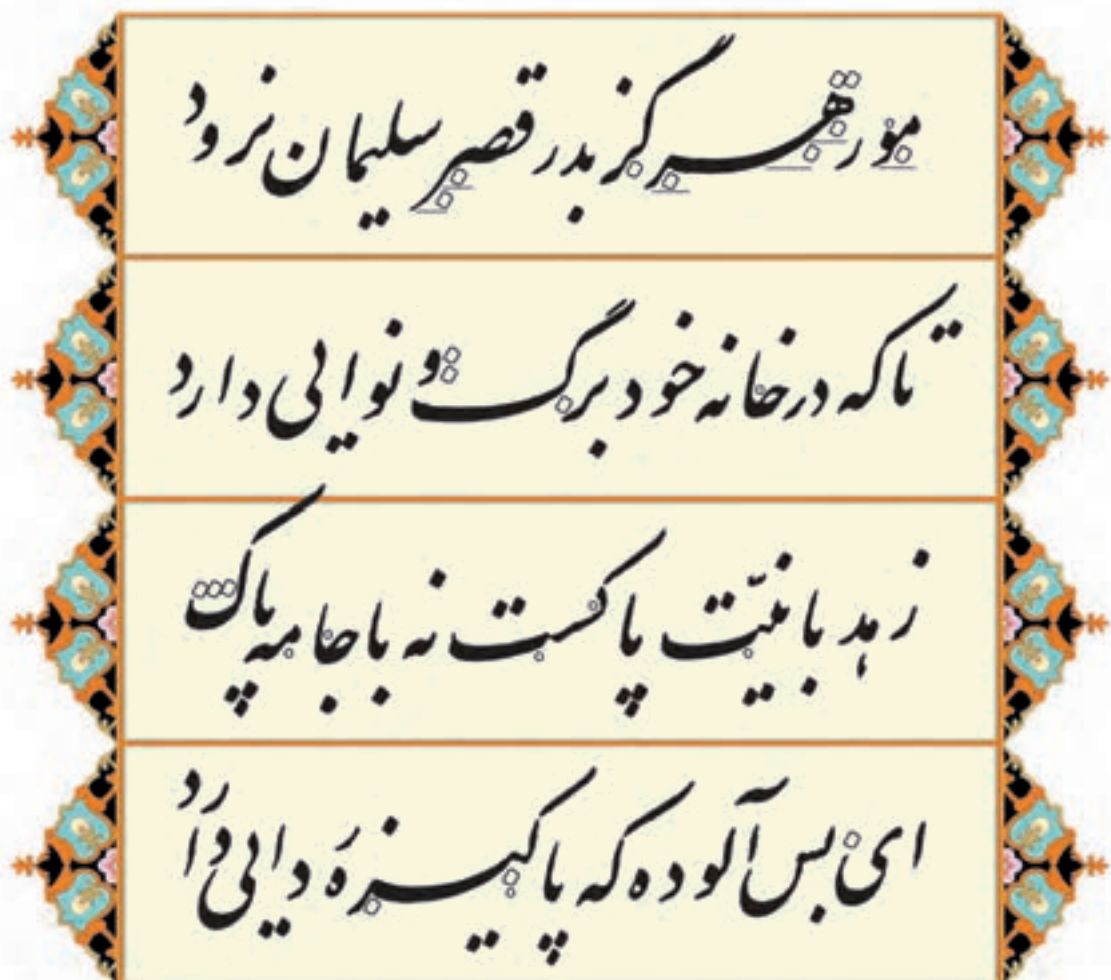 مور هرگز بدر قصر سلیمان نرود
تا که در خانه خود برگ و نوایی دارد
زهد با نیّت پاکست نه با جامه پاک
ای بس آلوده که پاکیزه ردایی دارد